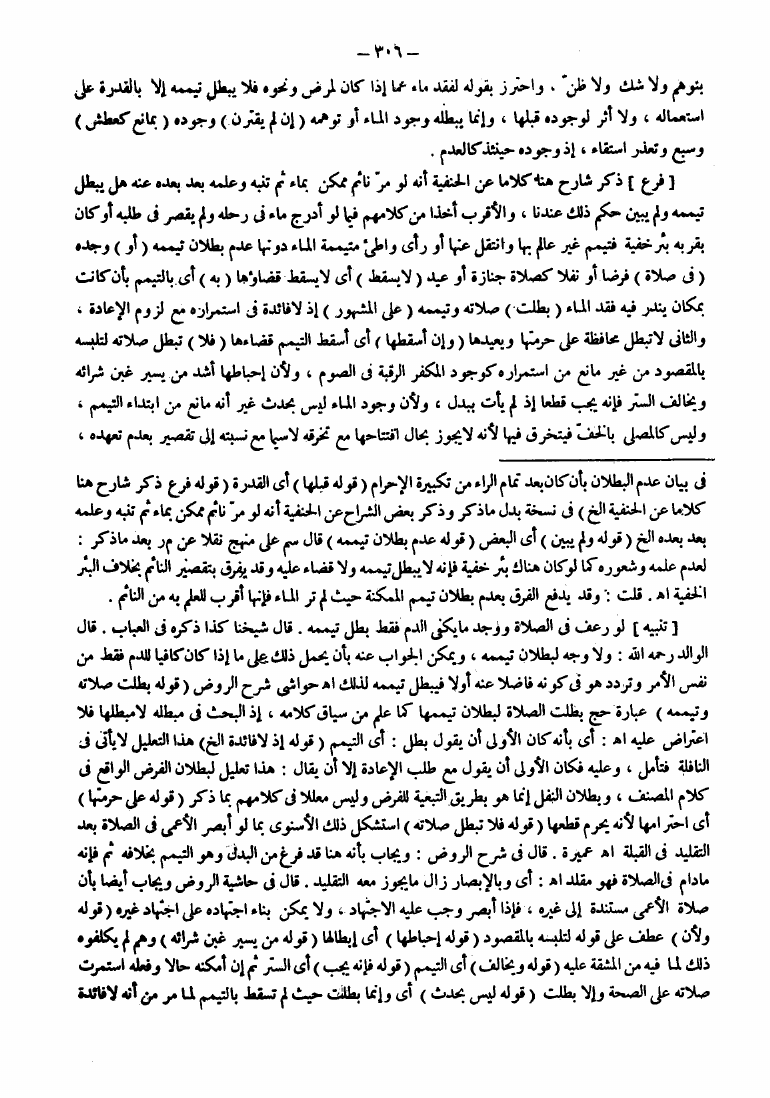 — ٣٠٦ —
يتوهم ولا شك ولا ظنّ ، واحترز بقوله لفقد ماء عما إذا كان لمرض ونحوه فلا يبطل تيممه إلا بالقدرة على
استعماله ، ولا أثر لوجوده قبلها ، وإنما يبطله وجود الماء أو توهمه ( إن لم يقترن ) وجوده ( بمانع كعطش )
وسبع وتعذر استقاء ، إذ وجوده حينئذ كالعدم .
[ فرع ] ذكر شارح هنا كلاما عن الحنفية أنه لو مرّ نائم ممكن بماء ثم تنبه وعلمه بعد بعده عنه هل يبطل
تيممه ولم يبين حكم ذلك عندنا ، والأقرب أخذا من كلامهم فيما لو أدرج ماء فى رحله ولم يقصر فى طلبه أو كان
بقربه بئر خفية فتيمم غير عالم بها وانتقل عنها أو رأى واطئ متيممة الماء دونها عدم بطلان تيممه ( أو ) وجده
( فى صلاة ) فرضا أو نفلا كصلاة جنازة أو عيد ( لايسقط ) أى لايسقط قضاؤها ( به ) أى بالتيمم بأن كانت
بمكان يندر فيه فقد الماء ( بطلت ) صلاته وتيممه ( على المشهور ) إذ لافائدة فى استمراره مع لزوم الإعادة ،
والثانى لاتبطل محافظة على حرمتها ويعيدها ( وإن أسقطها ) أى أسقط التيمم قضاءها ( فلا ) تبطل صلاته لتلبسه
بالمقصود من غير مانع من استمراره كوجود المكفر الرقبة فى الصوم ، ولأن إحباطها أشد من يسير غبن شرائه
ويخالف الستر فإنه يجب قطعا إذ لم يأت ببدل ، ولأن وجود الماء ليس بحدث غير أنه مانع من ابتداء التيمم ،
وليس كالمصلى بالخفّ فيتخرق فيها لأنه لايجوز بحال افتتاحها مع تخرقه لاسيما مع نسبته إلى تقصير بعدم تعهده ،
فى بيان عدم البطلان بأن كان بعد تمام الراء من تكبيرة الإحرام ( قوله قبلها ) أى القدرة ( قوله فرع ذكر شارح هنا
كلاما عن الحنفية الخ ) فى نسخة بدل ماذكر وذكر بعض الشراح عن الحنفية أنه لو مرّ نائم ممكن بماء ثم تنبه وعلمه
بعد بعده الخ ( قوله ولم يبين ) أى البعض ( قوله عدم بطلان تيممه ) قال سم على منهج نقلا عن م ر بعد ماذكر :
لعدم علمه وشعوره كما لو كان هناك بئر خفية فإنه لايبطل تيممه ولا قضاء عليه وقد يفرق بتقصير النائم بخلاف البئر
الخفية اهـ . قلت : وقد يدفع الفرق بعدم بطلان تيمم الممكنة حيث لم تر الماء فإنها أقرب للعلم به من النائم .
[ تنبيه ] لو رعف فى الصلاة ووجد مايكفى الدم فقط بطل تيممه . قال شيخنا كذا ذكره فى العباب . قال
الوالد رحمه الله : ولا وجه لبطلان تيممه ، ويمكن الجواب عنه بأن يحمل ذلك على ما إذا كان كافيا للدم فقط من
نفس الأمر وتردد هو فى كونه فاضلا عنه أولا فيبطل تيممه لذلك اهـ حواشى شرح الروض ( قوله بطلت صلاته
وتيممه ) عبارة حج بطلت الصلاة لبطلان تيممها كما علم من سياق كلامه ، إذ البحث فى مبطله لامبطلها فلا
اعتراض عليه اهـ : أى بأنه كان الأولى أن يقول بطل : أى التيمم ( قوله إذ لافائدة الخ ) هذا التعليل لايأتى فى
النافلة فتأمل ، وعليه فكان الأولى أن يقول مع طلب الإعادة إلا أن يقال : هذا تعليل لبطلان الفرض الواقع فى
كلام المصنف ، وبطلان النفل إنما هو بطريق التبعية للفرض وليس معللا فى كلامهم بما ذكر ( قوله على حرمتها )
أى احترامها لأنه يحرم قطعها ( قوله فلا تبطل صلاته ) استشكل ذلك الأسنوى بما لو أبصر الأعمى فى الصلاة بعد
التقليد فى القبلة اهـ عميرة . قال فى شرح الروض : ويجاب بأنه هنا قد فرغ من البدل وهو التيمم بخلافه ثم فإنه
مادام فى الصلاة فهو مقلد اهـ : أى وبالإبصار زال مايجوز معه التقليد . قال فى حاشية الروض ويجاب أيضا بأن
صلاة الأعمى مستندة إلى غيره ، فإذا أبصر وجب عليه الاجتهاد ، ولا يمكن بناء اجتهاده على اجتهاد غيره ( قوله
ولأن ) عطف على قوله لتلبسه بالمقصود ( قوله إحباطها ) أى إبطالها ( قوله من يسير غبن شرائه ) وهم لم يكلفوه
ذلك لما فيه من المشقة عليه ( قوله ويخالف ) أى التيمم ( قوله فإنه يجب ) أى الستر ثم إن أمكنه حالا وفعله استمرت
صلاته على الصحة وإلا بطلت ( قوله ليس بحدث ) أى وإنما بطلت حيث لم تسقط بالتيمم لما مر من أنه لافائدة